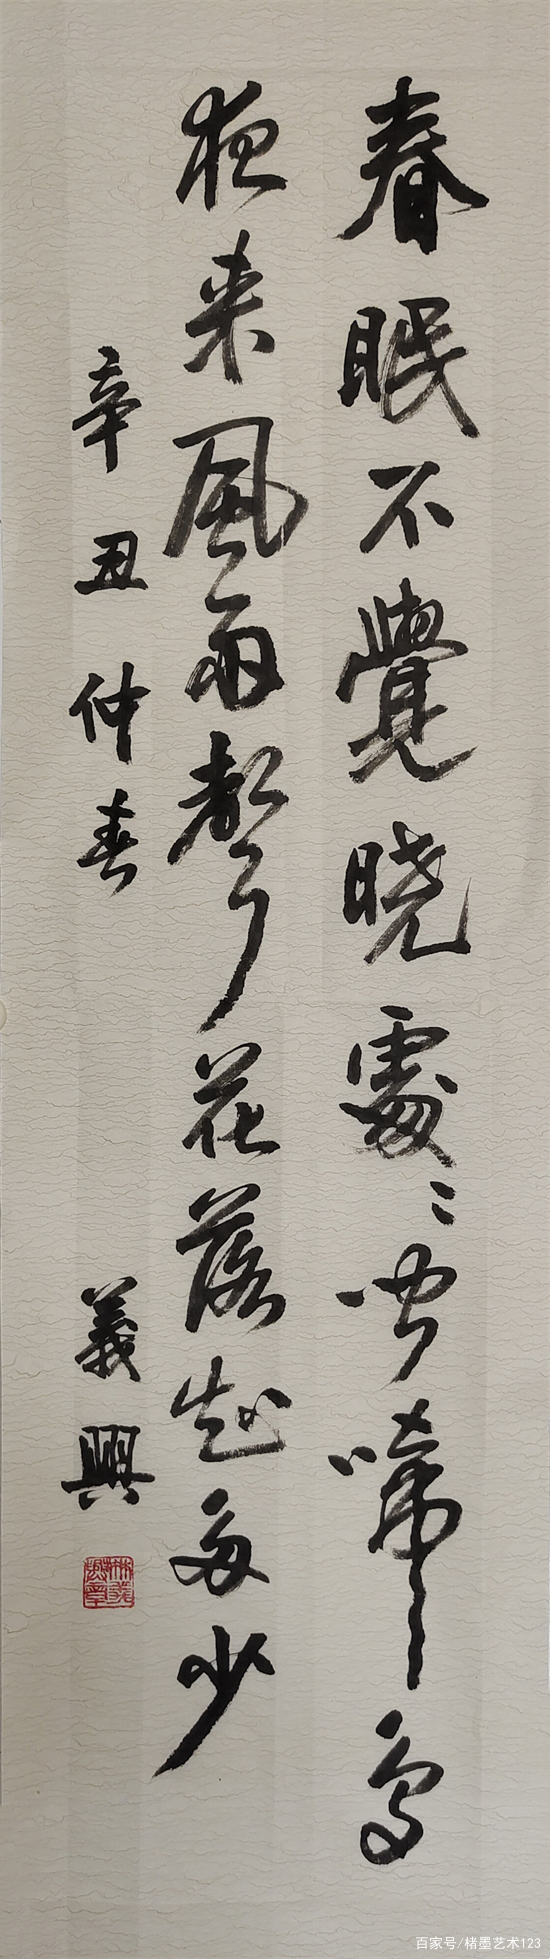 春眠不覺曉處〻聞啼鳥
夜来風雨聲花落知多少
辛丑仲春
義興
百家号/楮墨艺术123